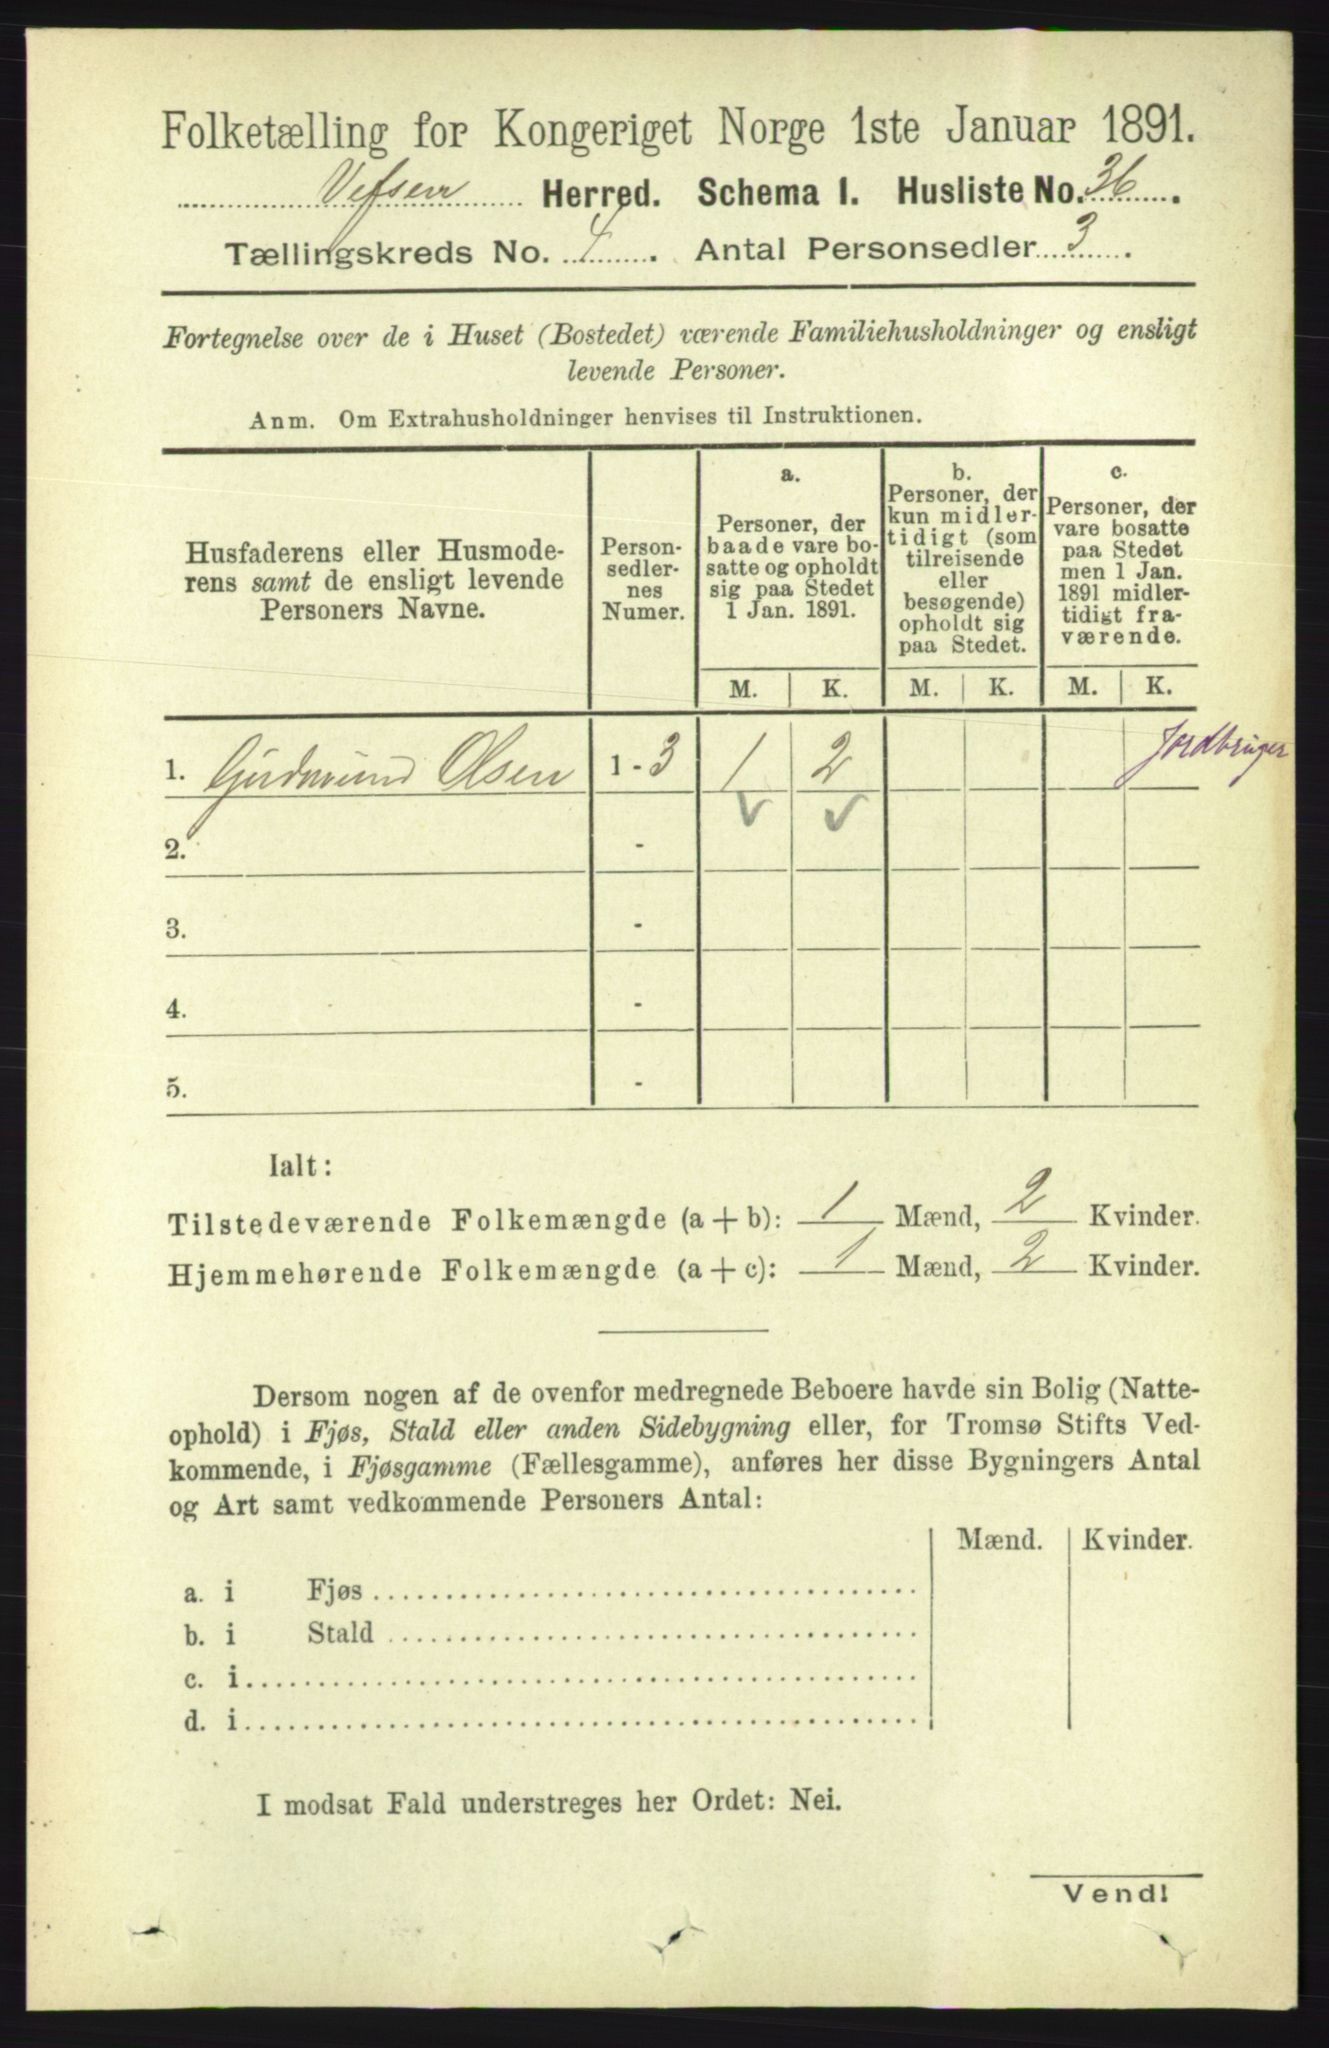 Folketælling for Kongeriget Norge 1ste Januar 1891.
Vefsen Herred. Schema I. Husliste No. 36.
Tællingskreds No. 4. Antal Personsedler 3.
Fortegnelse over de i Huset (Bostedet) værende Familiehusholdninger og ensligt
levende Personer.
Anm. Om Extrahusholdninger henvises til Instruktionen.
Husfaderens eller Husmode-
rens samt de ensligt levende
Personers Navne.
Person-
sedler-
nes
Numer.
a.
Personer, der
baade vare bo-
satte og opholdt
sig paa Stedet
1 Jan. 1891.
b.
Personer, der
kun midler-
tidigt (som
tilreisende
eller
besøgende)
opholdt sig
paa Stedet.
c.
Personer, der
vare bosatte
paa Stedet
men 1 Jan.
1891 midler-
tidigt fra-
værende.
M. K. M. K. M. K.
1. Gudmund Olsen 1 - 3 1 2 Jordbruger
2. -
3. -
4. -
5. -
Ialt:
Tilstedeværende Folkemængde (a + b): 1 Mænd, 2 Kvinder.
Hjemmehørende Folkemængde (a + c): 1 Mænd, 2 Kvinder.
Dersom nogen af de ovenfor medregnede Beboere havde sin Bolig (Natte-
ophold) i Fjøs, Stald eller anden Sidebygning eller, for Tromsø Stifts Ved-
kommende, i Fjøsgamme (Fællesgamme), anføres her disse Bygningers Antal
og Art samt vedkommende Personers Antal:
Mænd. Kvinder.
a. i Fjøs
b. i Stald
c. i
d. i
I modsat Fald understreges her Ordet: Nei.
Vend!